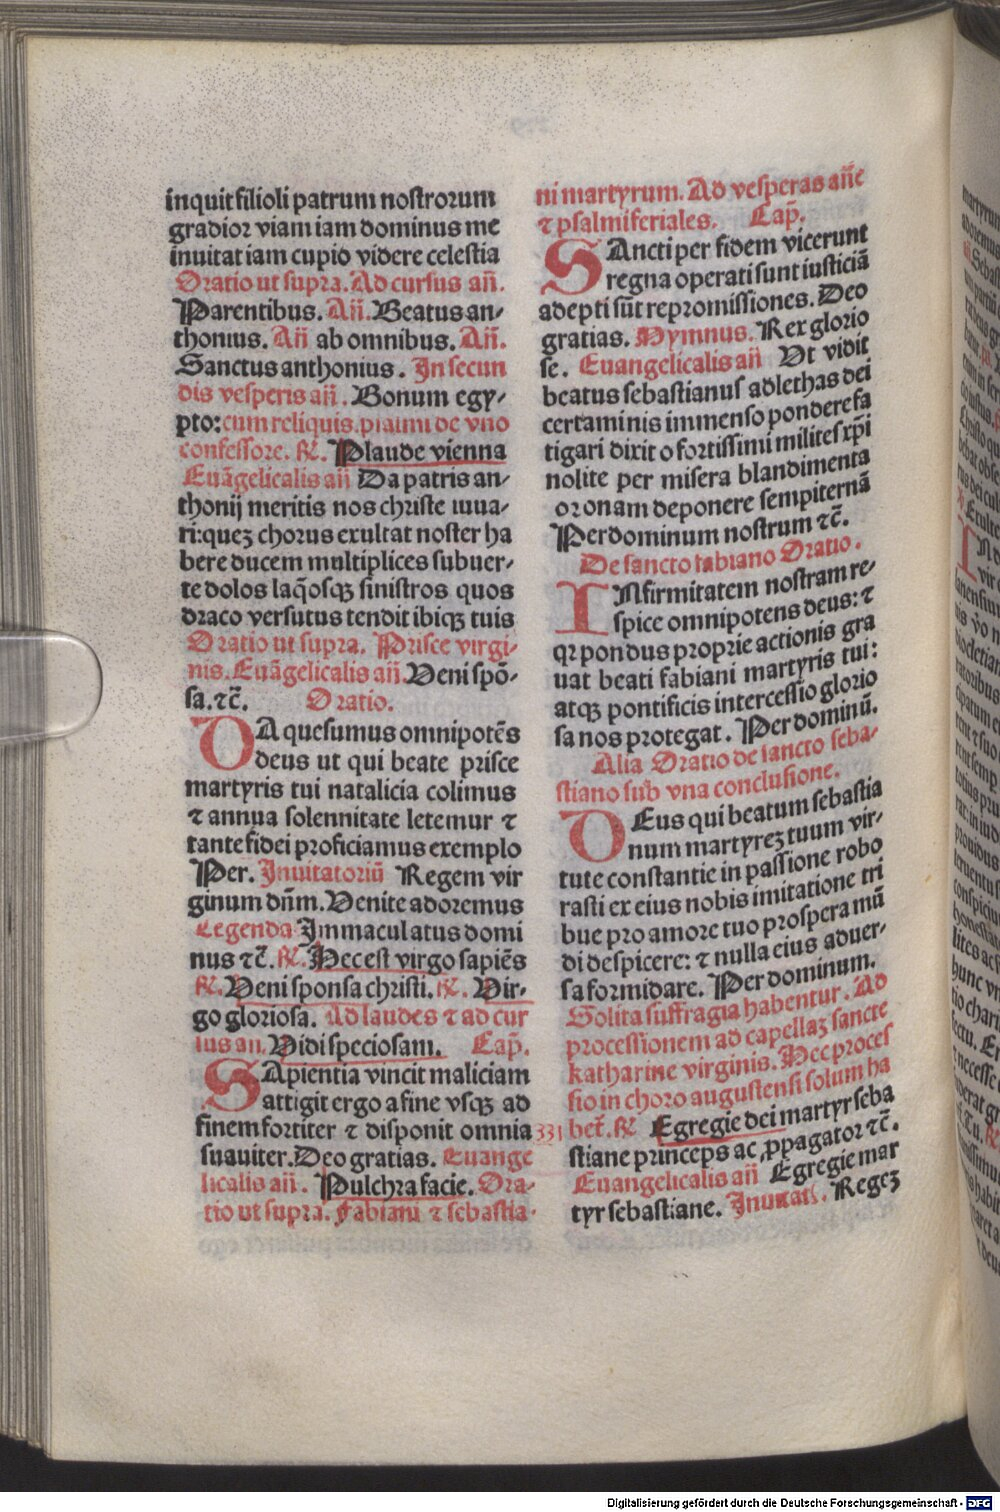 inquit filioli patrum nostrorum
gradior viam iam dominus me
inuitat iam cupio videre celestia
Oratio ut supra. Ad cursus añ.
Parentibus. Añ. Beatus an-
thonius. Añ ab omnibus. Añ.
Sanctus anthonius. In secun
dis vesperis añ. Bonum egy-
pto: cum reliquis. psalmi de vno
confessore. ℟. Plaude vienna
Euāgelicalis añ Da patris an-
thonij meritis nos christe iuua-
ri: quez chorus exultat noster ha
bere ducem multiplices subuer-
te dolos laq̄osqꝫ sinistros quos
draco versutus tendit ibiqꝫ tuis
Oratio ut supra. Prisce virgi-
nis. Euāgelicalis añ. Veni spō-
sa. ⁊c̄. Oratio.
DA quesumus omnipotēs
deus ut qui beate prisce
martyris tui natalicia colimus
⁊ annua solennitate letemur ⁊
tante fidei proficiamus exemplo
Per. Inuitatoriū Regem vir
ginum dñm. Venite adoremus
Legenda Immaculatus domi
nus ⁊c̄. ℟. Hec est virgo sapiēs
℟. Veni sponsa christi. ℟. Vir-
go gloriosa. Ad laudes ⁊ ad cur
sus an. Vidi speciosam. Cap̄.
SApientia vincit maliciam
attigit ergo a fine vsqꝫ ad
finem fortiter ⁊ disponit omnia
suauiter. Deo gratias. Euange
licalis añ. Pulchra facie. Ora-
tio ut supra. Fabiani ⁊ sebastia-
ni martyrum. Ad vesperas añe
⁊ psalmi feriales. Cap̄.
SAncti per fidem vicerunt
regna operati sunt iusticiā
adepti sūt repromissiones. Deo
gratias. Hymnus. Rex glorio
se. Euangelicalis añ Ut vidit
beatus sebastianus adlethas dei
certaminis immenso pondere fa
tigari dixit o fortissimi milites xp̄i
nolite per misera blandimenta
oronam deponere sempiternā
Per dominum nostrum ⁊c̄.
De sancto fabiano Oratio.
INfirmitatem nostram re-
spice omnipotens deus: ⁊
qꝛ pondus proprie actionis gra
uat beati fabiani martyris tui:
atqꝫ pontificis intercessio glorio
sa nos protegat. Per dominū.
Alia Oratio de sancto seba-
stiano sub vna conclusione.
DEus qui beatum sebastia
num martyrez tuum vir-
tute constantie in passione robo
rasti ex eius nobis imitatione tri
bue pro amore tuo prospera mū
di despicere: ⁊ nulla eius aduer-
sa formidare. Per dominum.
Solita suffragia habentur. Ad
processionem ad capellaz sancte
katharine virginis. Hec proces
sio in choro augustensi solum ha
331 bet̄. ℟ Egregie dei martyr seba
stiane princeps ac ꝓpagator ⁊c̄.
Euangelicalis añ Egregie mar
tyr sebastiane. Inuitat. Regez